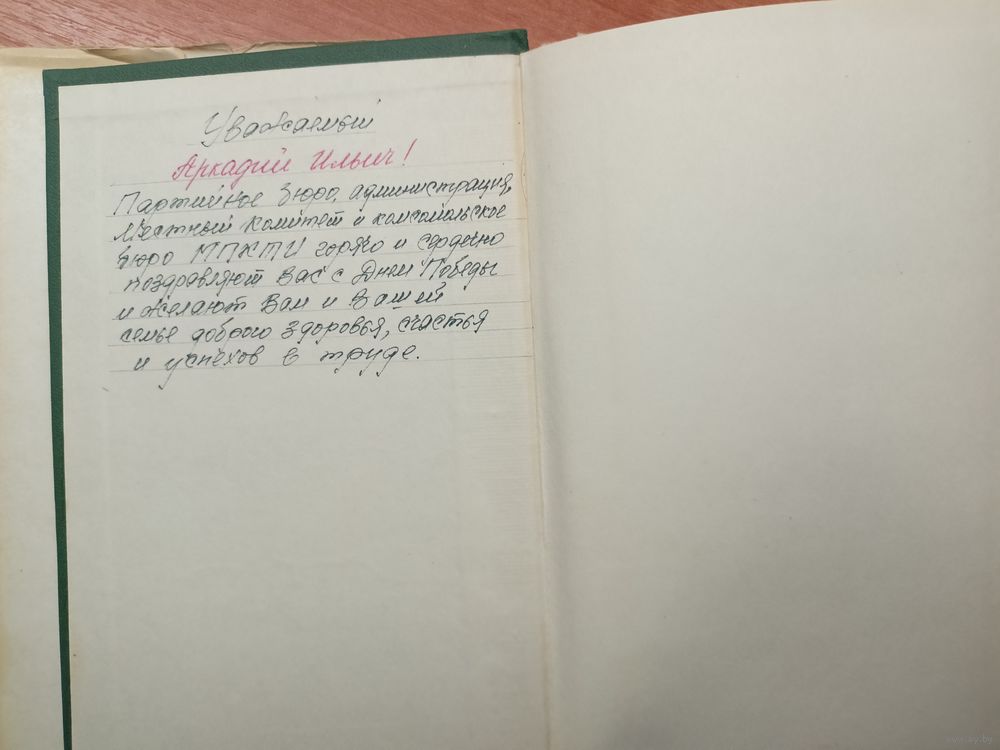 Уважаемый
Аркадий Ильич!
Партийное бюро, администрация,
местный комитет и комсомольское
бюро МПКТИ горячо и сердечно
поздравляют Вас с Днем Победы
и желают Вам и Вашей
семье доброго здоровья, счастья
и успехов в труде.